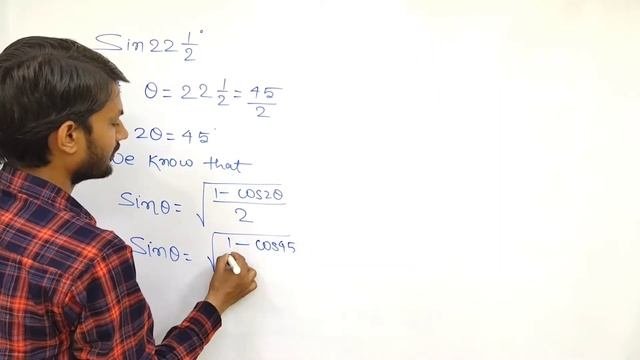 Sin 22 1/2°
θ = 22 1/2 = 45/2
2θ = 45°
we know that
Sinθ = √((1 - cos2θ)/2)
Sinθ = √(1 - cos45